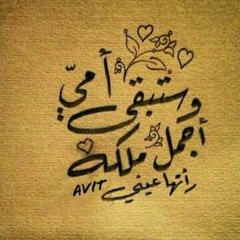 وستبقى أميّ
أجمل ملكه
رأتها عيني
AVIT